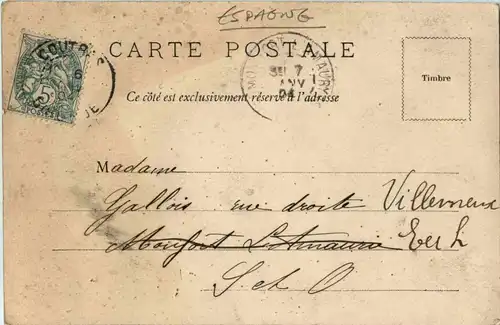 ESPAGNE
CARTE POSTALE
Ce côté est exclusivement réservé à l'adresse
Timbre
Madame
Gallois rue droite Villemeux
Monfort L'Amaurie
S et O